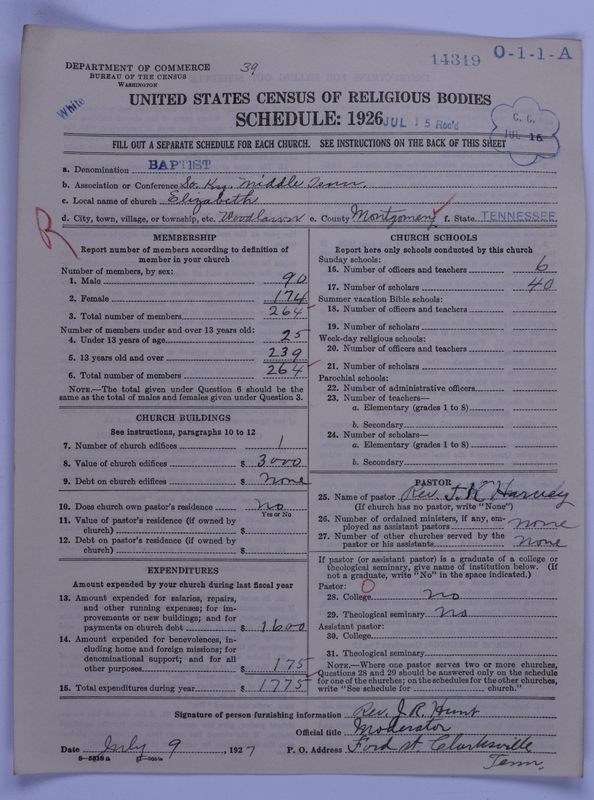 DEPARTMENT OF COMMERCE
BUREAU OF THE CENSUS
WASHINGTON
39
14319
O-1-1-A
White
UNITED STATES CENSUS OF RELIGIOUS BODIES
SCHEDULE: 1926
JUL 15 Rec'd
C. C.
JUL 15
FILL OUT A SEPARATE SCHEDULE FOR EACH CHURCH. SEE INSTRUCTIONS ON THE BACK OF THIS SHEET
a. Denomination BAPTIST
b. Association or Conference So. Ky. Middle Tenn.
c. Local name of church Elizabeth
d. City, town, village, or township, etc. Woodlawn e. County Montgomery f. State TENNESSEE
R
MEMBERSHIP
Report number of members according to definition of
member in your church
Number of members, by sex:
1. Male 90
2. Female 174
3. Total number of members 264
Number of members under and over 13 years old:
4. Under 13 years of age 25
5. 13 years old and over 239
6. Total number of members 264
NOTE.—The total given under Question 6 should be the
same as the total of males and females given under Question 3.
CHURCH BUILDINGS
See instructions, paragraphs 10 to 12
7. Number of church edifices 1
8. Value of church edifices $ 3000
9. Debt on church edifices $ none
10. Does church own pastor's residence no
Yes or No
11. Value of pastor's residence (if owned by
church) $
12. Debt on pastor's residence (if owned by
church) $
EXPENDITURES
Amount expended by your church during last fiscal year
13. Amount expended for salaries, repairs,
and other running expenses; for im-
provements or new buildings; and for
payments on church debt $ 1600
14. Amount expended for benevolences, in-
cluding home and foreign missions; for
denominational support; and for all
other purposes $ 175
15. Total expenditures during year $ 1775
CHURCH SCHOOLS
Report here only schools conducted by this church
Sunday schools:
16. Number of officers and teachers 6
17. Number of scholars 40
Summer vacation Bible schools:
18. Number of officers and teachers
19. Number of scholars
Week-day religious schools:
20. Number of officers and teachers
21. Number of scholars
Parochial schools:
22. Number of administrative officers
23. Number of teachers—
a. Elementary (grades 1 to 8)
b. Secondary
24. Number of scholars—
a. Elementary (grades 1 to 8)
b. Secondary
PASTOR
25. Name of pastor Rev. J. K. Harvey
(If church has no pastor, write "None")
26. Number of ordained ministers, if any, em-
ployed as assistant pastors none
27. Number of other churches served by the
pastor or his assistants none
If pastor (or assistant pastor) is a graduate of a college or
theological seminary, give name of institution below. (If
not a graduate, write "No" in the space indicated.)
Pastor: O
28. College no
29. Theological seminary no
Assistant pastor:
30. College
31. Theological seminary
NOTE.—Where one pastor serves two or more churches,
Questions 28 and 29 should be answered only on the schedule
for one of the churches; on the schedules for the other churches,
write "See schedule for church."
Signature of person furnishing information Rev. J. R. Hunt
Official title Moderator
Date July 9, 1927 P. O. Address Ford st. Clarksville
Tenn.
8-5818a